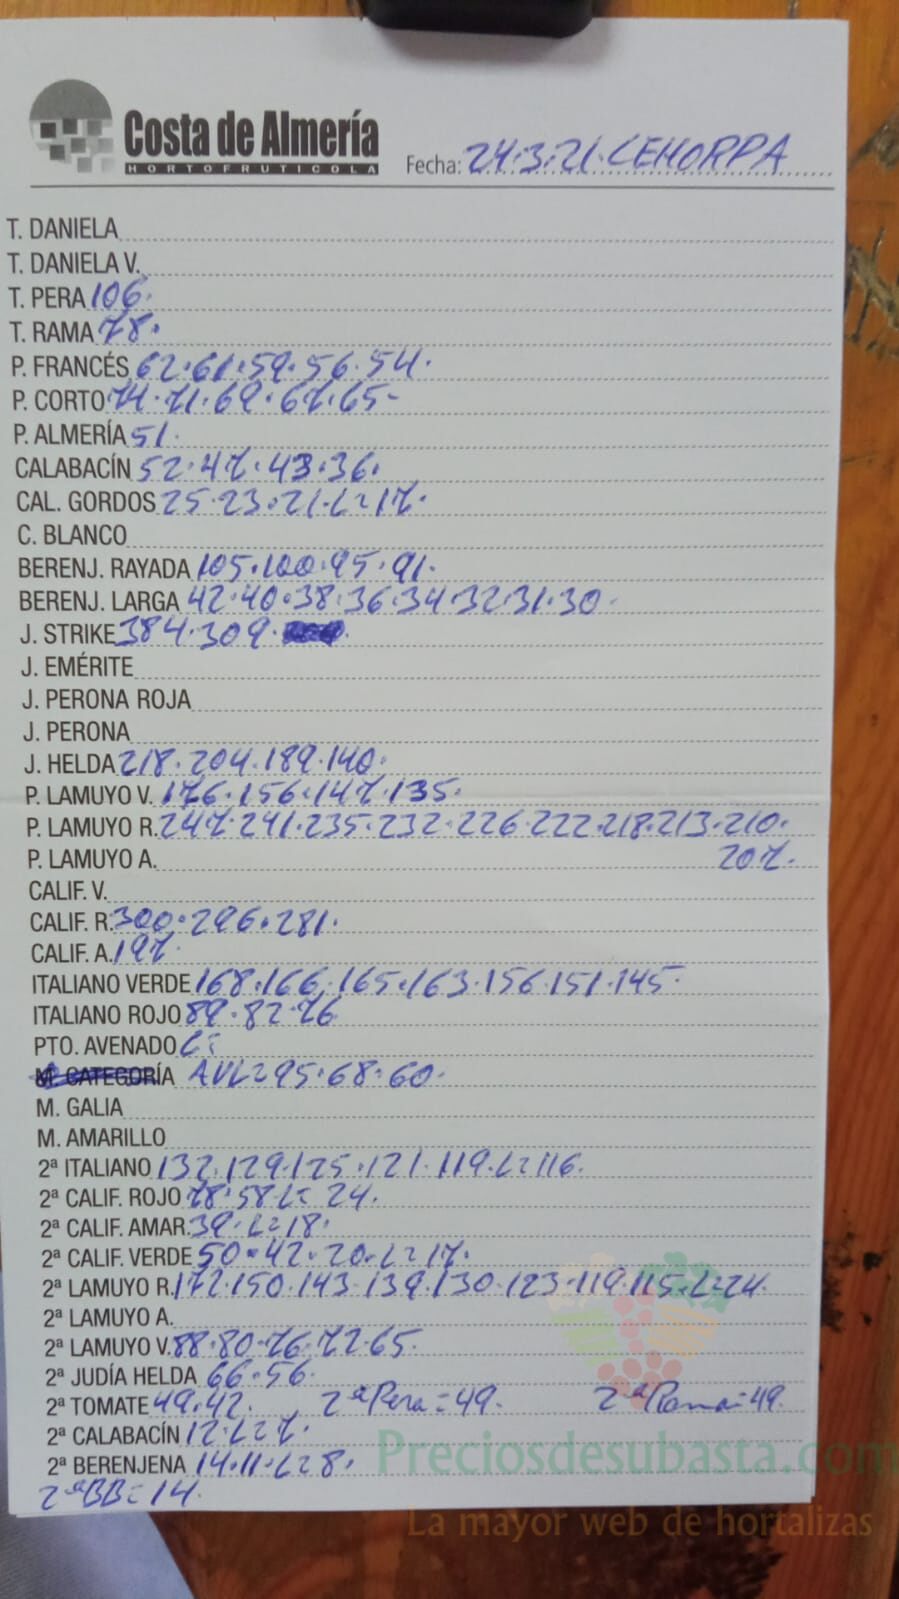 Costa de Almería
HORTOFRUTICOLA
Fecha: 24.3.21.CEHORPA
T. DANIELA
T. DANIELA V.
T. PERA 106.
T. RAMA 78.
P. FRANCÉS 62.61.59.56.54.
P. CORTO 74.71.69.67.65-
P. ALMERÍA 51.
CALABACÍN 52.47.43.36.
CAL. GORDOS 25.23.21.L=17.
C. BLANCO
BERENJ. RAYADA 105.100.95.91.
BERENJ. LARGA 42.40.38.36.34.32.31.30.
J. STRIKE 384.309.
J. EMÉRITE
J. PERONA ROJA
J. PERONA
J. HELDA 218.204.189.140.
P. LAMUYO V. 176.156.147.135.
P. LAMUYO R. 247.241.235.232.226.222.218.213.210.
P. LAMUYO A. 207.
CALIF. V.
CALIF. R. 300.296.281.
CALIF. A. 197.
ITALIANO VERDE 168.166.165.163.156.151.145.
ITALIANO ROJO 89.82.76
PTO. AVENADO L=
M. CATEGORÍA AVL=95.68.60.
M. GALIA
M. AMARILLO
2ª ITALIANO 132.129.125.121.119.L=116.
2ª CALIF. ROJO 78.58 L= 24.
2ª CALIF. AMAR. 39.L=18.
2ª CALIF. VERDE 50.42.20.L=17.
2ª LAMUYO R. 172.150.143.139.130.123.119.115.L=24.
2ª LAMUYO A.
2ª LAMUYO V. 88.80.76.72.65.
2ª JUDÍA HELDA 66.56.
2ª TOMATE 49.42. 2ª Pera=49. 2ª Rama=49.
2ª CALABACÍN 12.L=7.
2ª BERENJENA 14.11.L=8.
2ªBB=14.
Preciosdesubasta.com
La mayor web de hortalizas